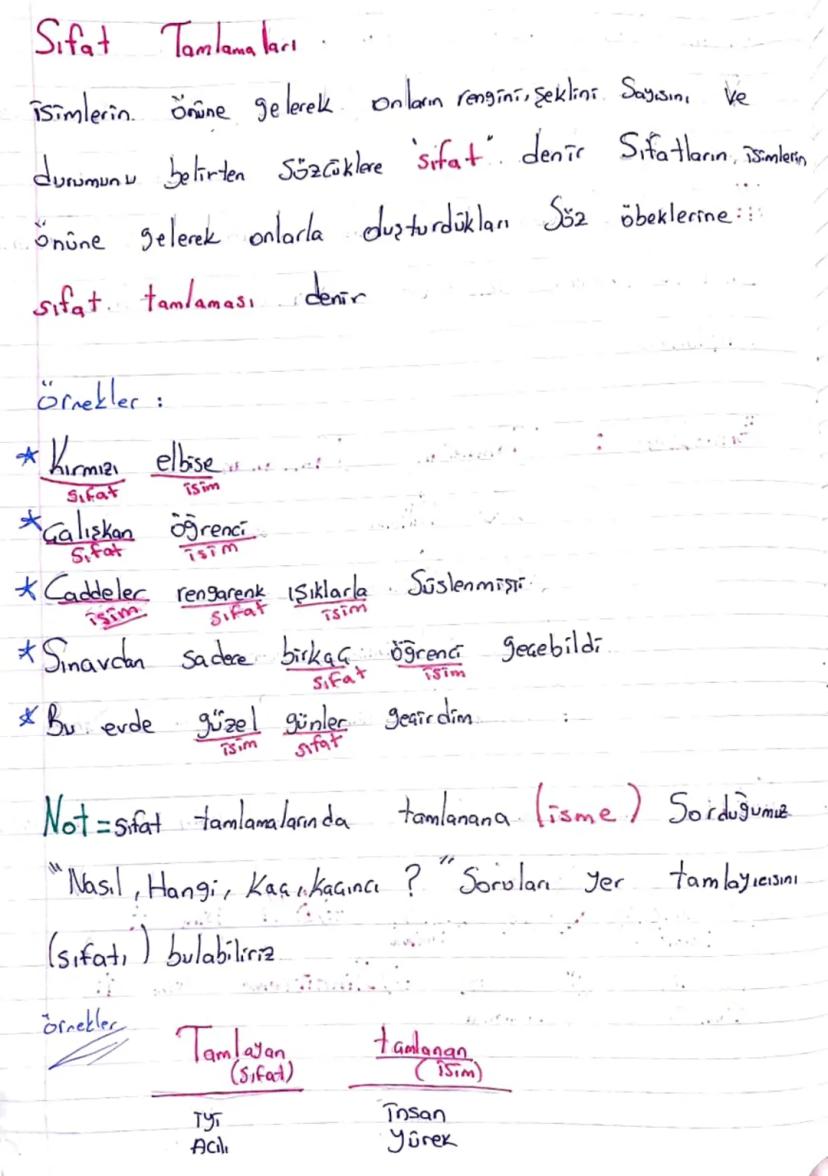 Sıfat Tamlamaları
İsimlerin önüne gelerek onların rengini, şeklini Sayısını ve
durumunu belirten Sözcüklere "sıfat" denir Sıfatların, isimlerin
önüne gelerek onlarla oluşturdukları Söz öbeklerine
sıfat tamlaması denir
Örnekler :
* Kırmızı elbise
sıfat isim
* Çalışkan öğrenci
sıfat isim
* Caddeler rengarenk ışıklarla Süslenmişti
isim sıfat isim
* Sınavdan sadece birkaç öğrenci geçebildi
sıfat isim
* Bu evde güzel günler geçirdim
isim sıfat
Not = sıfat tamlamalarında tamlanana (isme) Sorduğumuz
"Nasıl, Hangi, Kaç, kaçıncı ?" Soruları yer tamlayıcısını
(sıfatı) bulabiliriz
örnekler
Tamlayan tamlanan
(sıfat) (isim)
İyi İnsan
Acılı Yürek